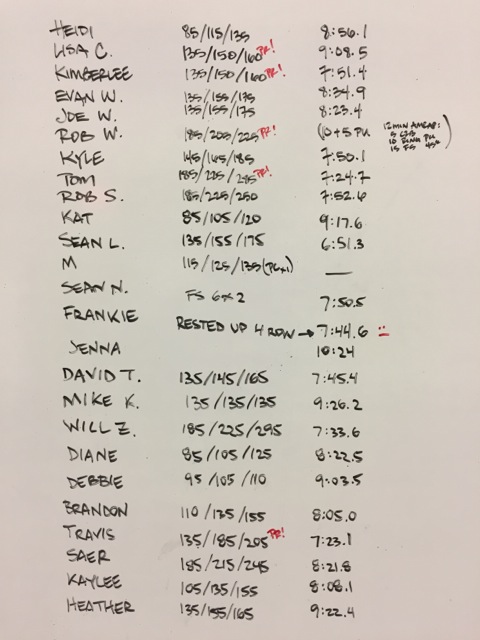 HEIDI 85/115/135 8:56.1
LISA C. 135/150/160 PR! 9:08.5
KIMBERLEE 135/150/160 PR! 7:51.4
EVAN W. 135/155/175 8:34.9
JOE W. 135/155/175 8:23.4
ROB W. 185/205/225 PR! (10+5 PU 12MIN AMRAP:
10 RING PU
15 FS 45#)
KYLE 145/165/185 7:50.1
TOM 185/225/275 PR! 7:24.7
ROB S. 185/225/250 7:52.6
KAT 85/105/120 9:17.6
SEAN L. 135/155/175 6:51.3
M 115/125/135 —
SEAN N. FS 6x2 7:50.5
FRANKIE RESTED UP 4 ROW → 7:44.6
JENNA 10:24
DAVID T. 135/145/165 7:45.4
MIKE K. 135/135/135 9:26.2
WILL Z. 185/225/295 7:33.6
DIANE 85/105/125 8:22.5
DEBBIE 95/105/110 9:03.5
BRANDON 110/135/155 8:05.0
TRAVIS 135/185/205 PR! 7:23.1
SAER 185/215/245 8:21.8
KAYLEE 105/135/155 8:08.1
HEATHER 135/155/165 9:22.4